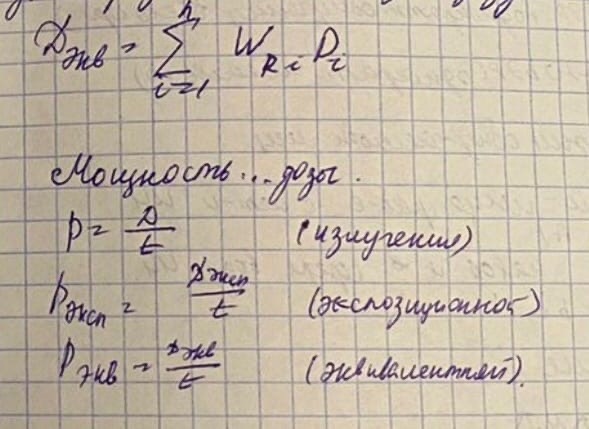 Dэкв = n Σ i=1 W R i D i
Мощность... дозы.
P = D/t (излучения)
Pэксп = Dэксп/t (экспозиционной)
Pэкв = Dэкв/t (эквивалентной).